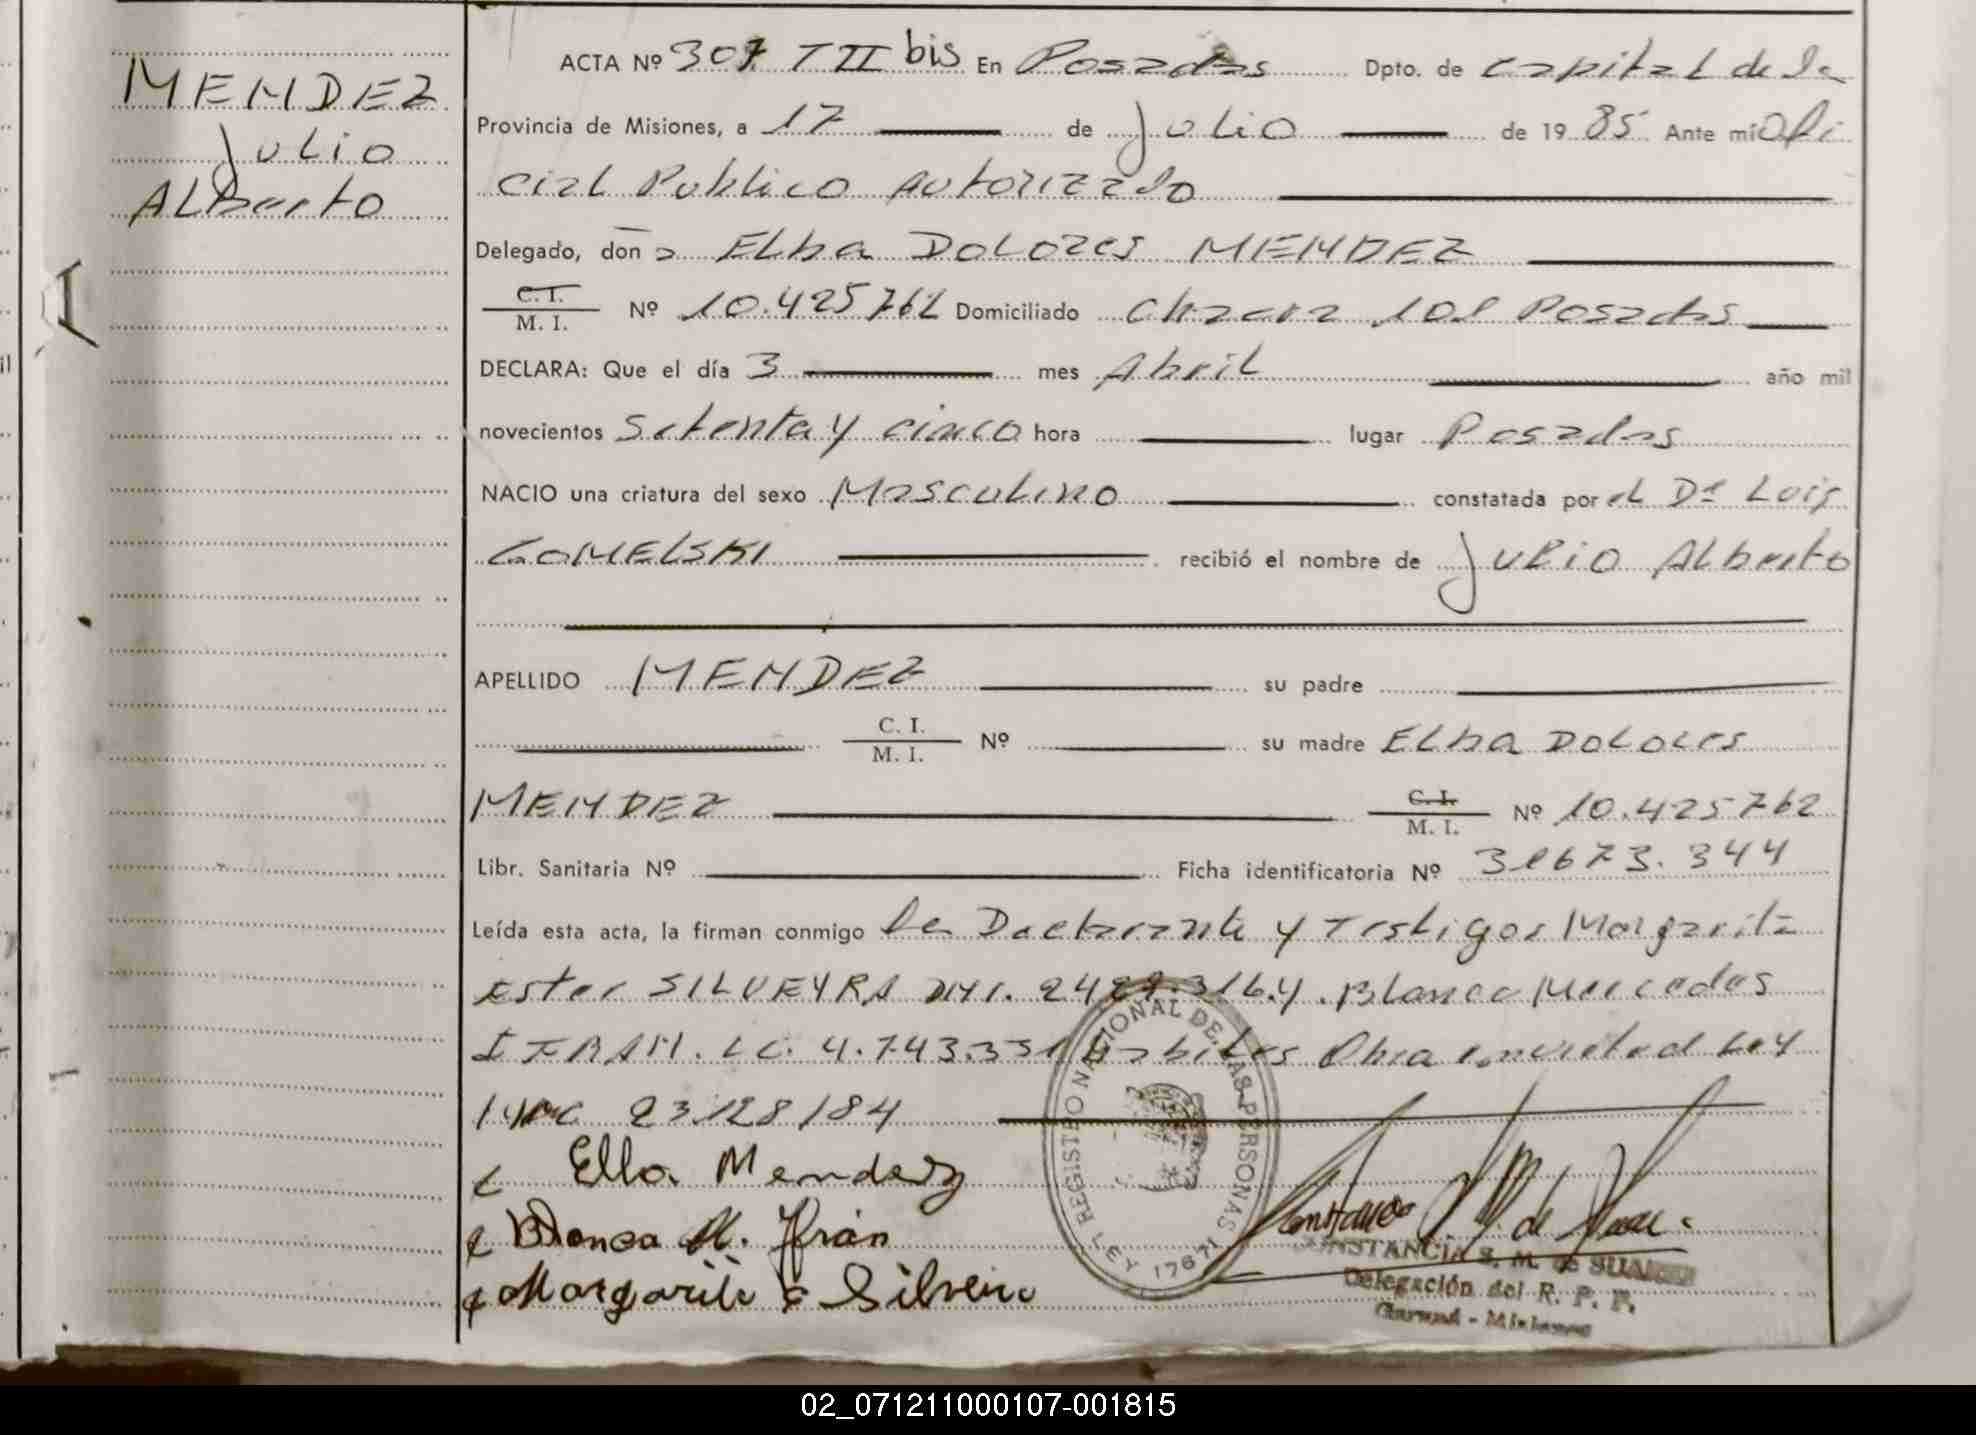 MENDEZ
Julio
ALberto
ACTA Nº 307 TII bis En Posadas Dpto. de capital de la
Provincia de Misiones, a 17 de Julio de 19 85 Ante mi Ofi
cial Publico Autorizado
Delegado, don a ELba DoLores MENDEZ
C. I.
M. I. Nº 10.425762 Domiciliado Chacra 101 Posadas
DECLARA: Que el día 3 mes AbriL año mil
novecientos Setenta y cinco hora lugar Posadas
NACIO una criatura del sexo Masculino constatada por el Dr Luis
GOMELSKI recibió el nombre de Julio ALberto
APELLIDO MENDEZ su padre
C. I.
M. I. Nº su madre ELba DoLores
MENDEZ C. I.
M. I. Nº 10.425762
Libr. Sanitaria Nº Ficha identificatoria Nº 31673.344
Leída esta acta, la firman conmigo la y Testigos Margarita
Ester SILVEYRA Blanca Mercedes
LC. 4.743.331 Habiles Obra Ley
23128/84
Mendez
Blanca M. Ifrán
Margarita E Silveira
REGISTRO NACIONAL DE LAS PERSONAS
LEY 17671
CONSTANCIA S. M. de SUAREZ
Delegación del R. P. P.
Garupá - Misiones
02_071211000107-001815